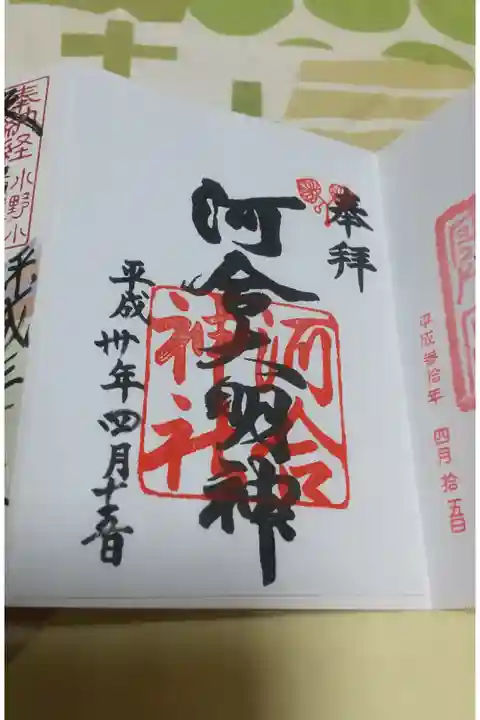 奉拝
河合大明神
河合
神社
平成卅年四月十五日
平成参拾年 四月 拾五日
奉納経
水野小
平成三